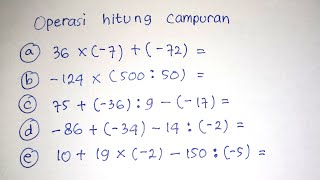 Operasi hitung campuran
a 36 × (-7) + (-72) =
b -124 × (500 : 50) =
c 75 + (-36) : 9 - (-17) =
d -86 + (-34) - 14 : (-2) =
e 10 + 19 × (-2) - 150 : (-5) =